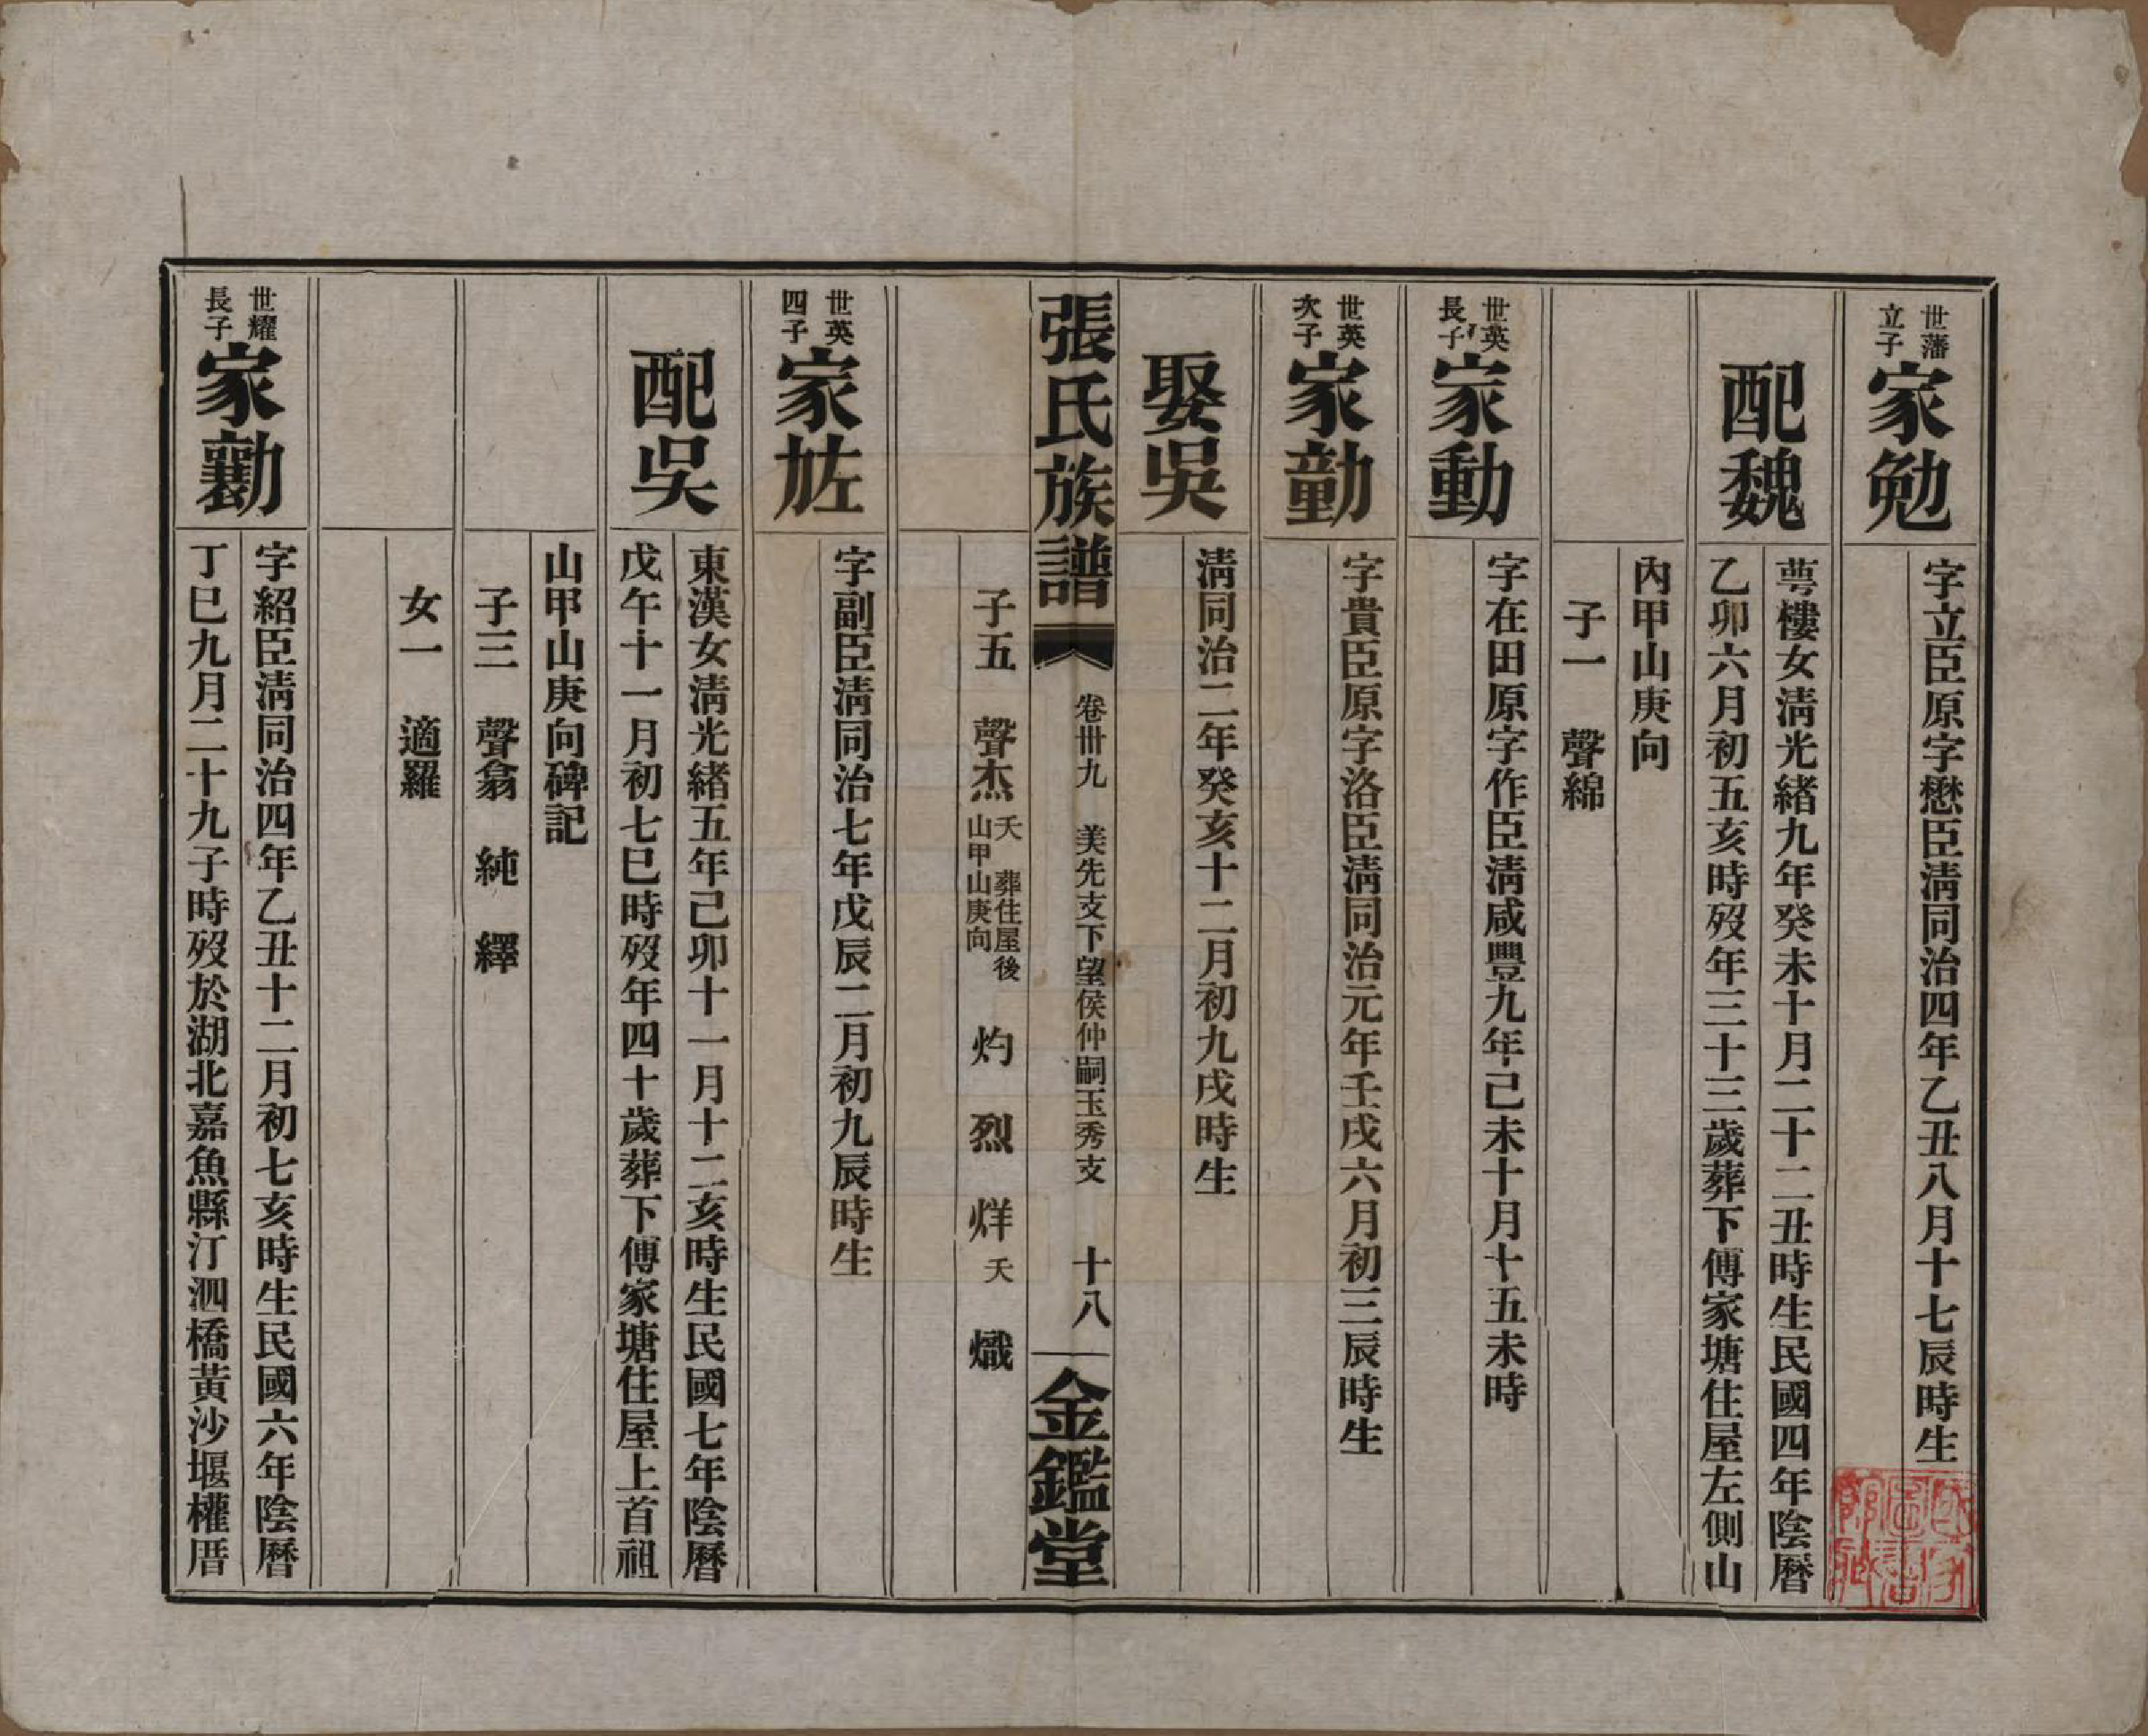 世藩
立子
家勉
字立臣原字懋臣淸同治四年乙丑八月十七辰時生
配魏
萼樓女淸光緒九年癸未十月二十二丑時生民國四年陰曆
乙卯六月初五亥時歿年三十三歲葬下傅家塘住屋左側山
內甲山庚向
子一　聲綿
世英
長子
家動
字在田原字作臣淸咸豐九年己未十月十五未時
世英
次子
家勭
字貴臣原字洛臣淸同治元年壬戌六月初三辰時生
娶吳
淸同治二年癸亥十二月初九戌時生
張氏族譜　卷卅九　美先支下望侯仲嗣玉秀支　十八　金鑑堂
子五　聲杰　夭　葬住屋後山甲山庚向　灼　烈　烊　夭　熾
世英
四子
家㔦
字副臣淸同治七年戊辰二月初九辰時生
配吳
東漢女淸光緒五年己卯十一月十二亥時生民國七年陰曆
戊午十一月初七巳時歿年四十歲葬下傅家塘住屋上首祖
山甲山庚向碑記
子三　聲翕　純　繹
女一　適羅
世耀
長子
家勷
字紹臣淸同治四年乙丑十二月初七亥時生民國六年陰曆
丁巳九月二十九子時歿於湖北嘉魚縣汀泗橋黃沙堰權厝